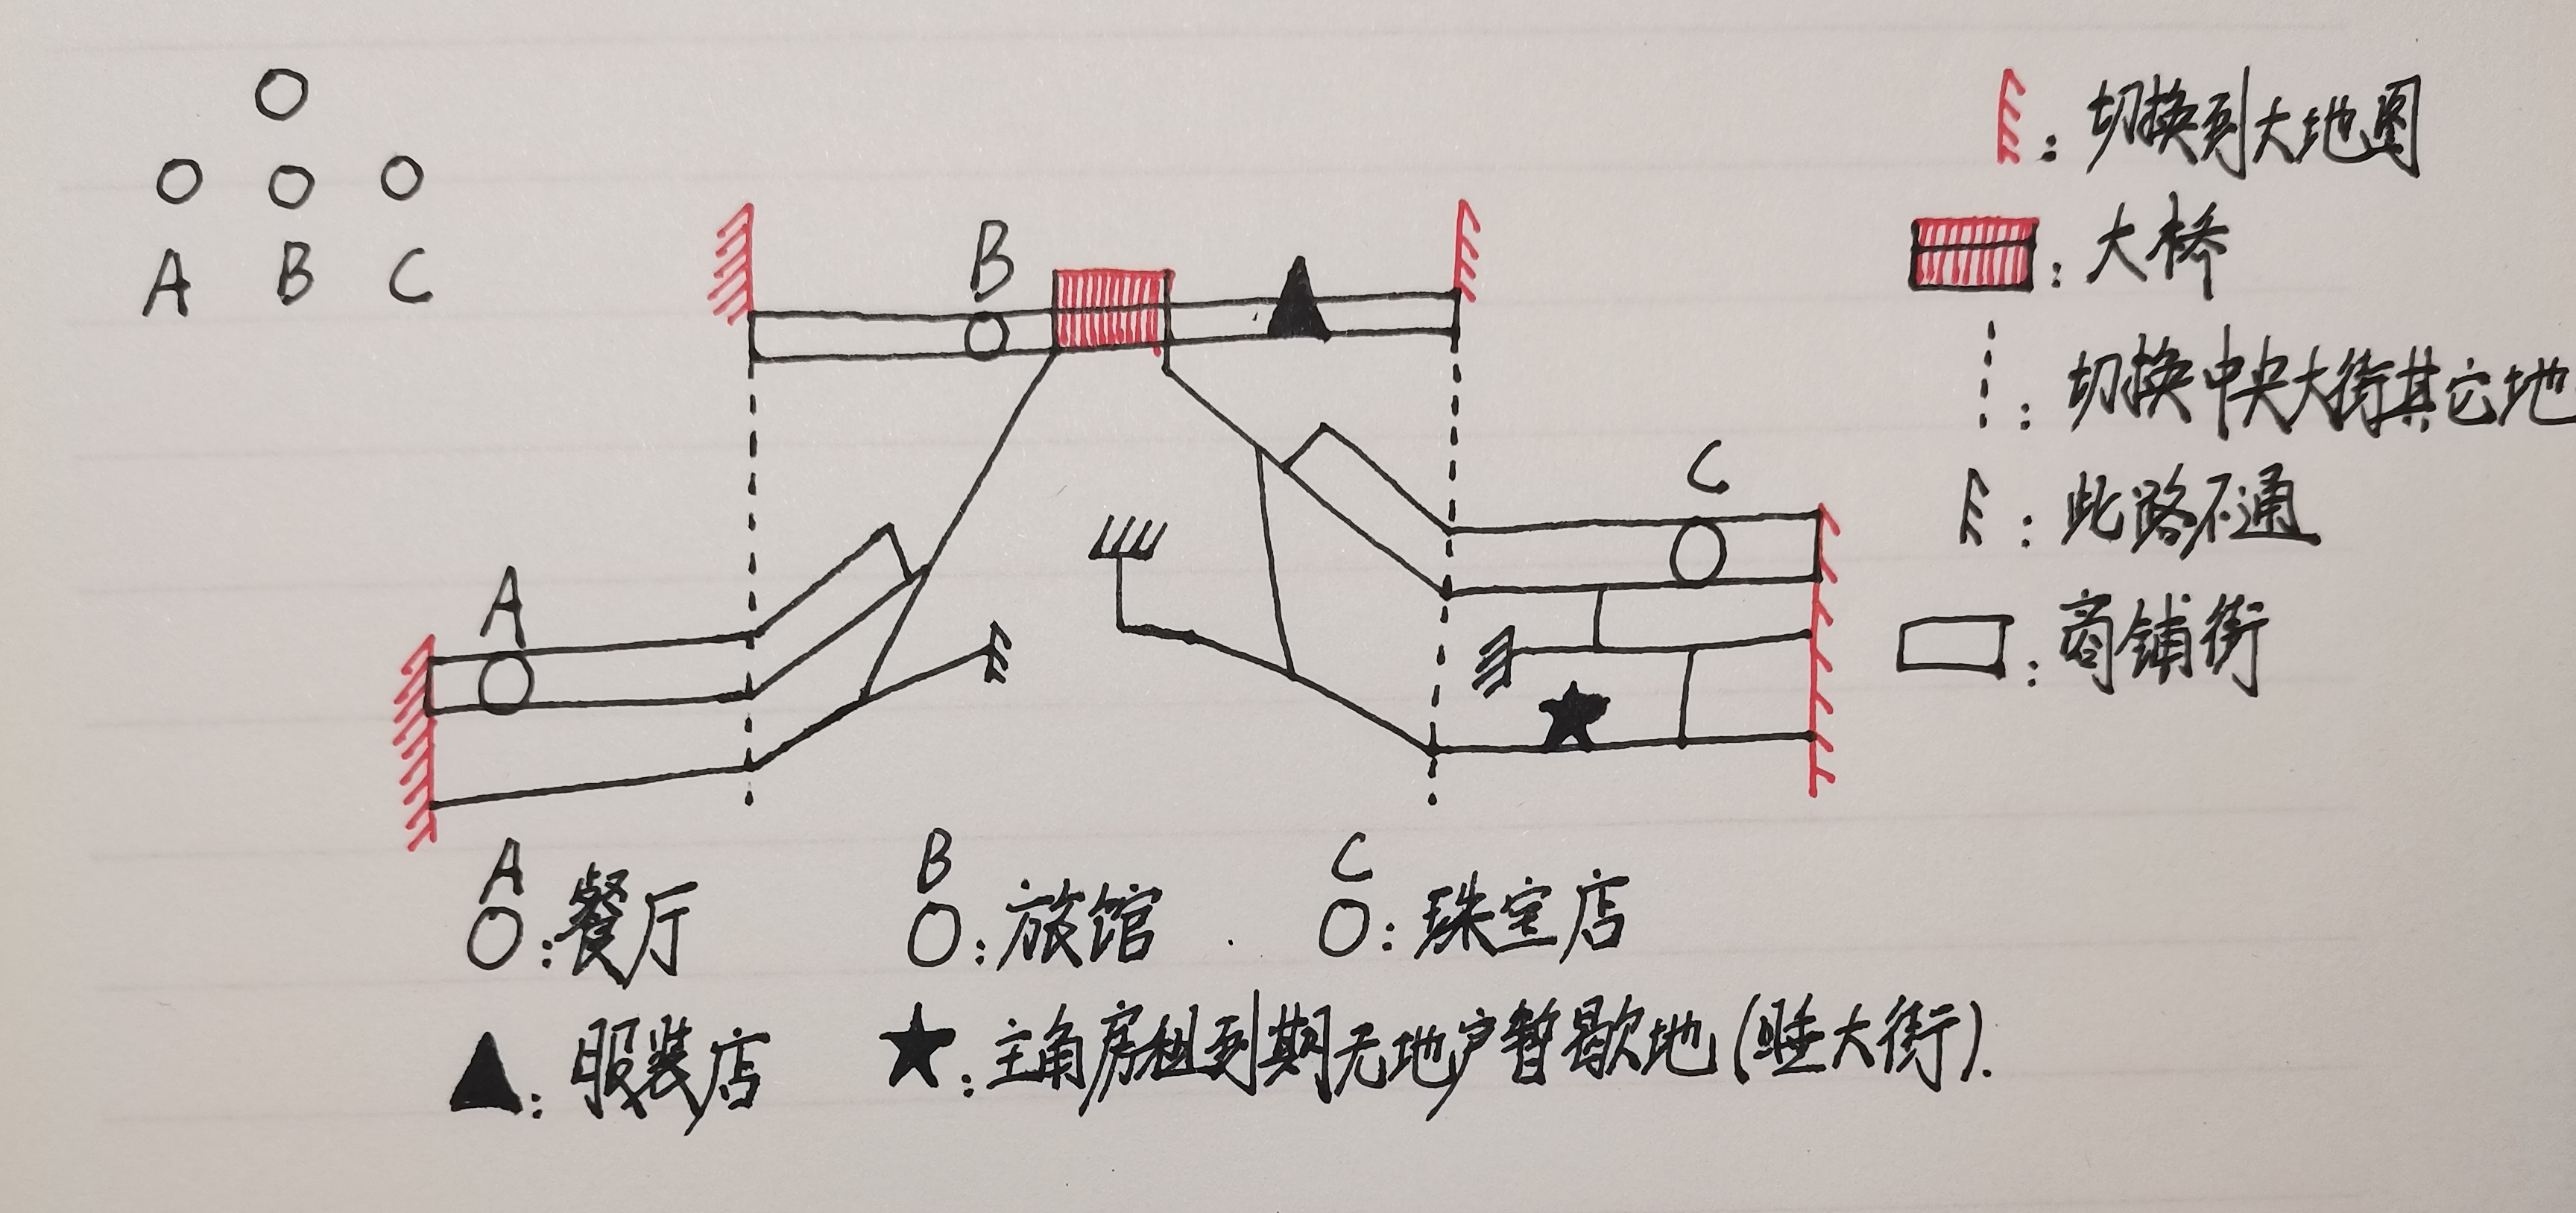 A B C
B
C
A
:切换到大地图
:大桥
:切换中央大街其它地
:此路不通
:商铺街
A B C
:餐厅 :旅馆 :珠宝店
:服装店 :主角房租到期无地户暂歇地(睡大街).